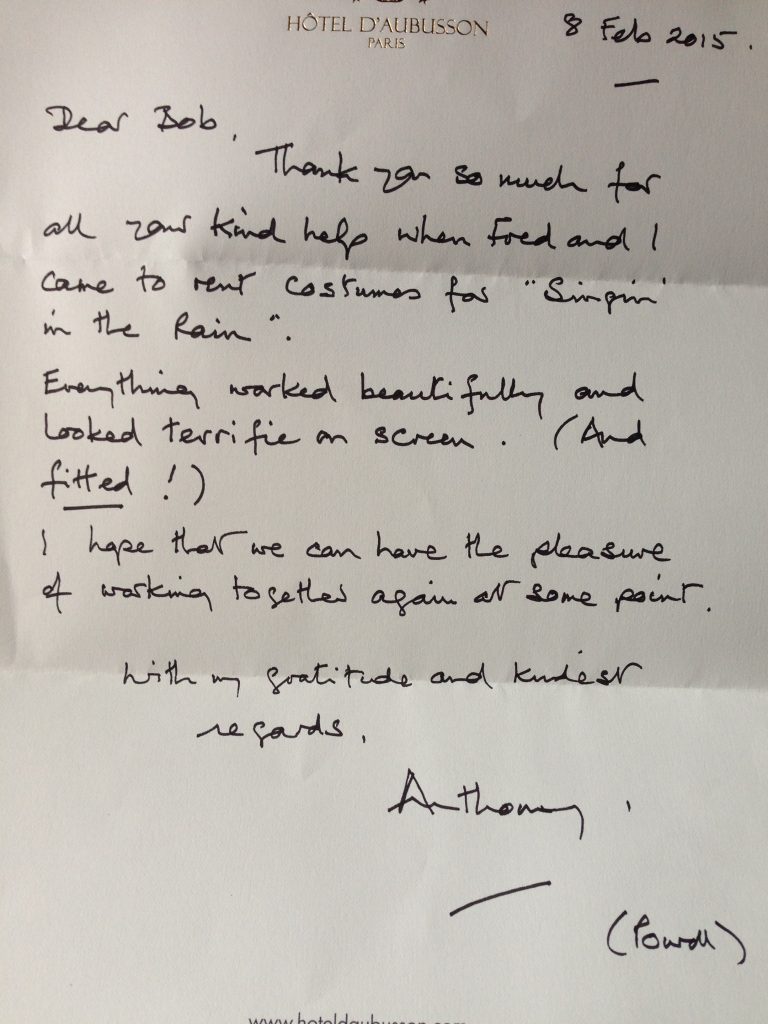 HÔTEL D'AUBUSSON
PARIS
8 Feb 2015.
Dear Bob,
Thank you so much for
all your kind help when Fred and I
came to rent costumes for "Singin'
in the Rain".
Everything worked beautifully and
looked terrific on screen. (And
fitted!)
I hope that we can have the pleasure
of working together again at some point.
With my gratitude and kindest
regards,
Anthony.
(Powell)
www.hoteldaubusson.com